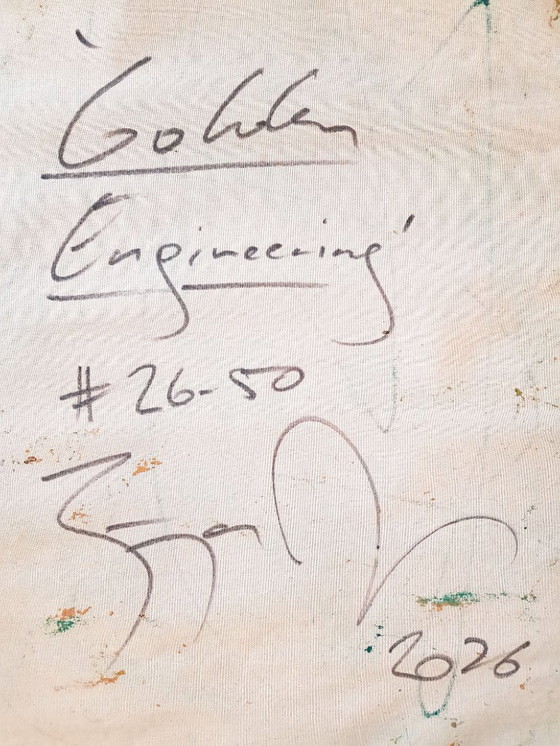 'Golden
Engineering'
#26-50
2026